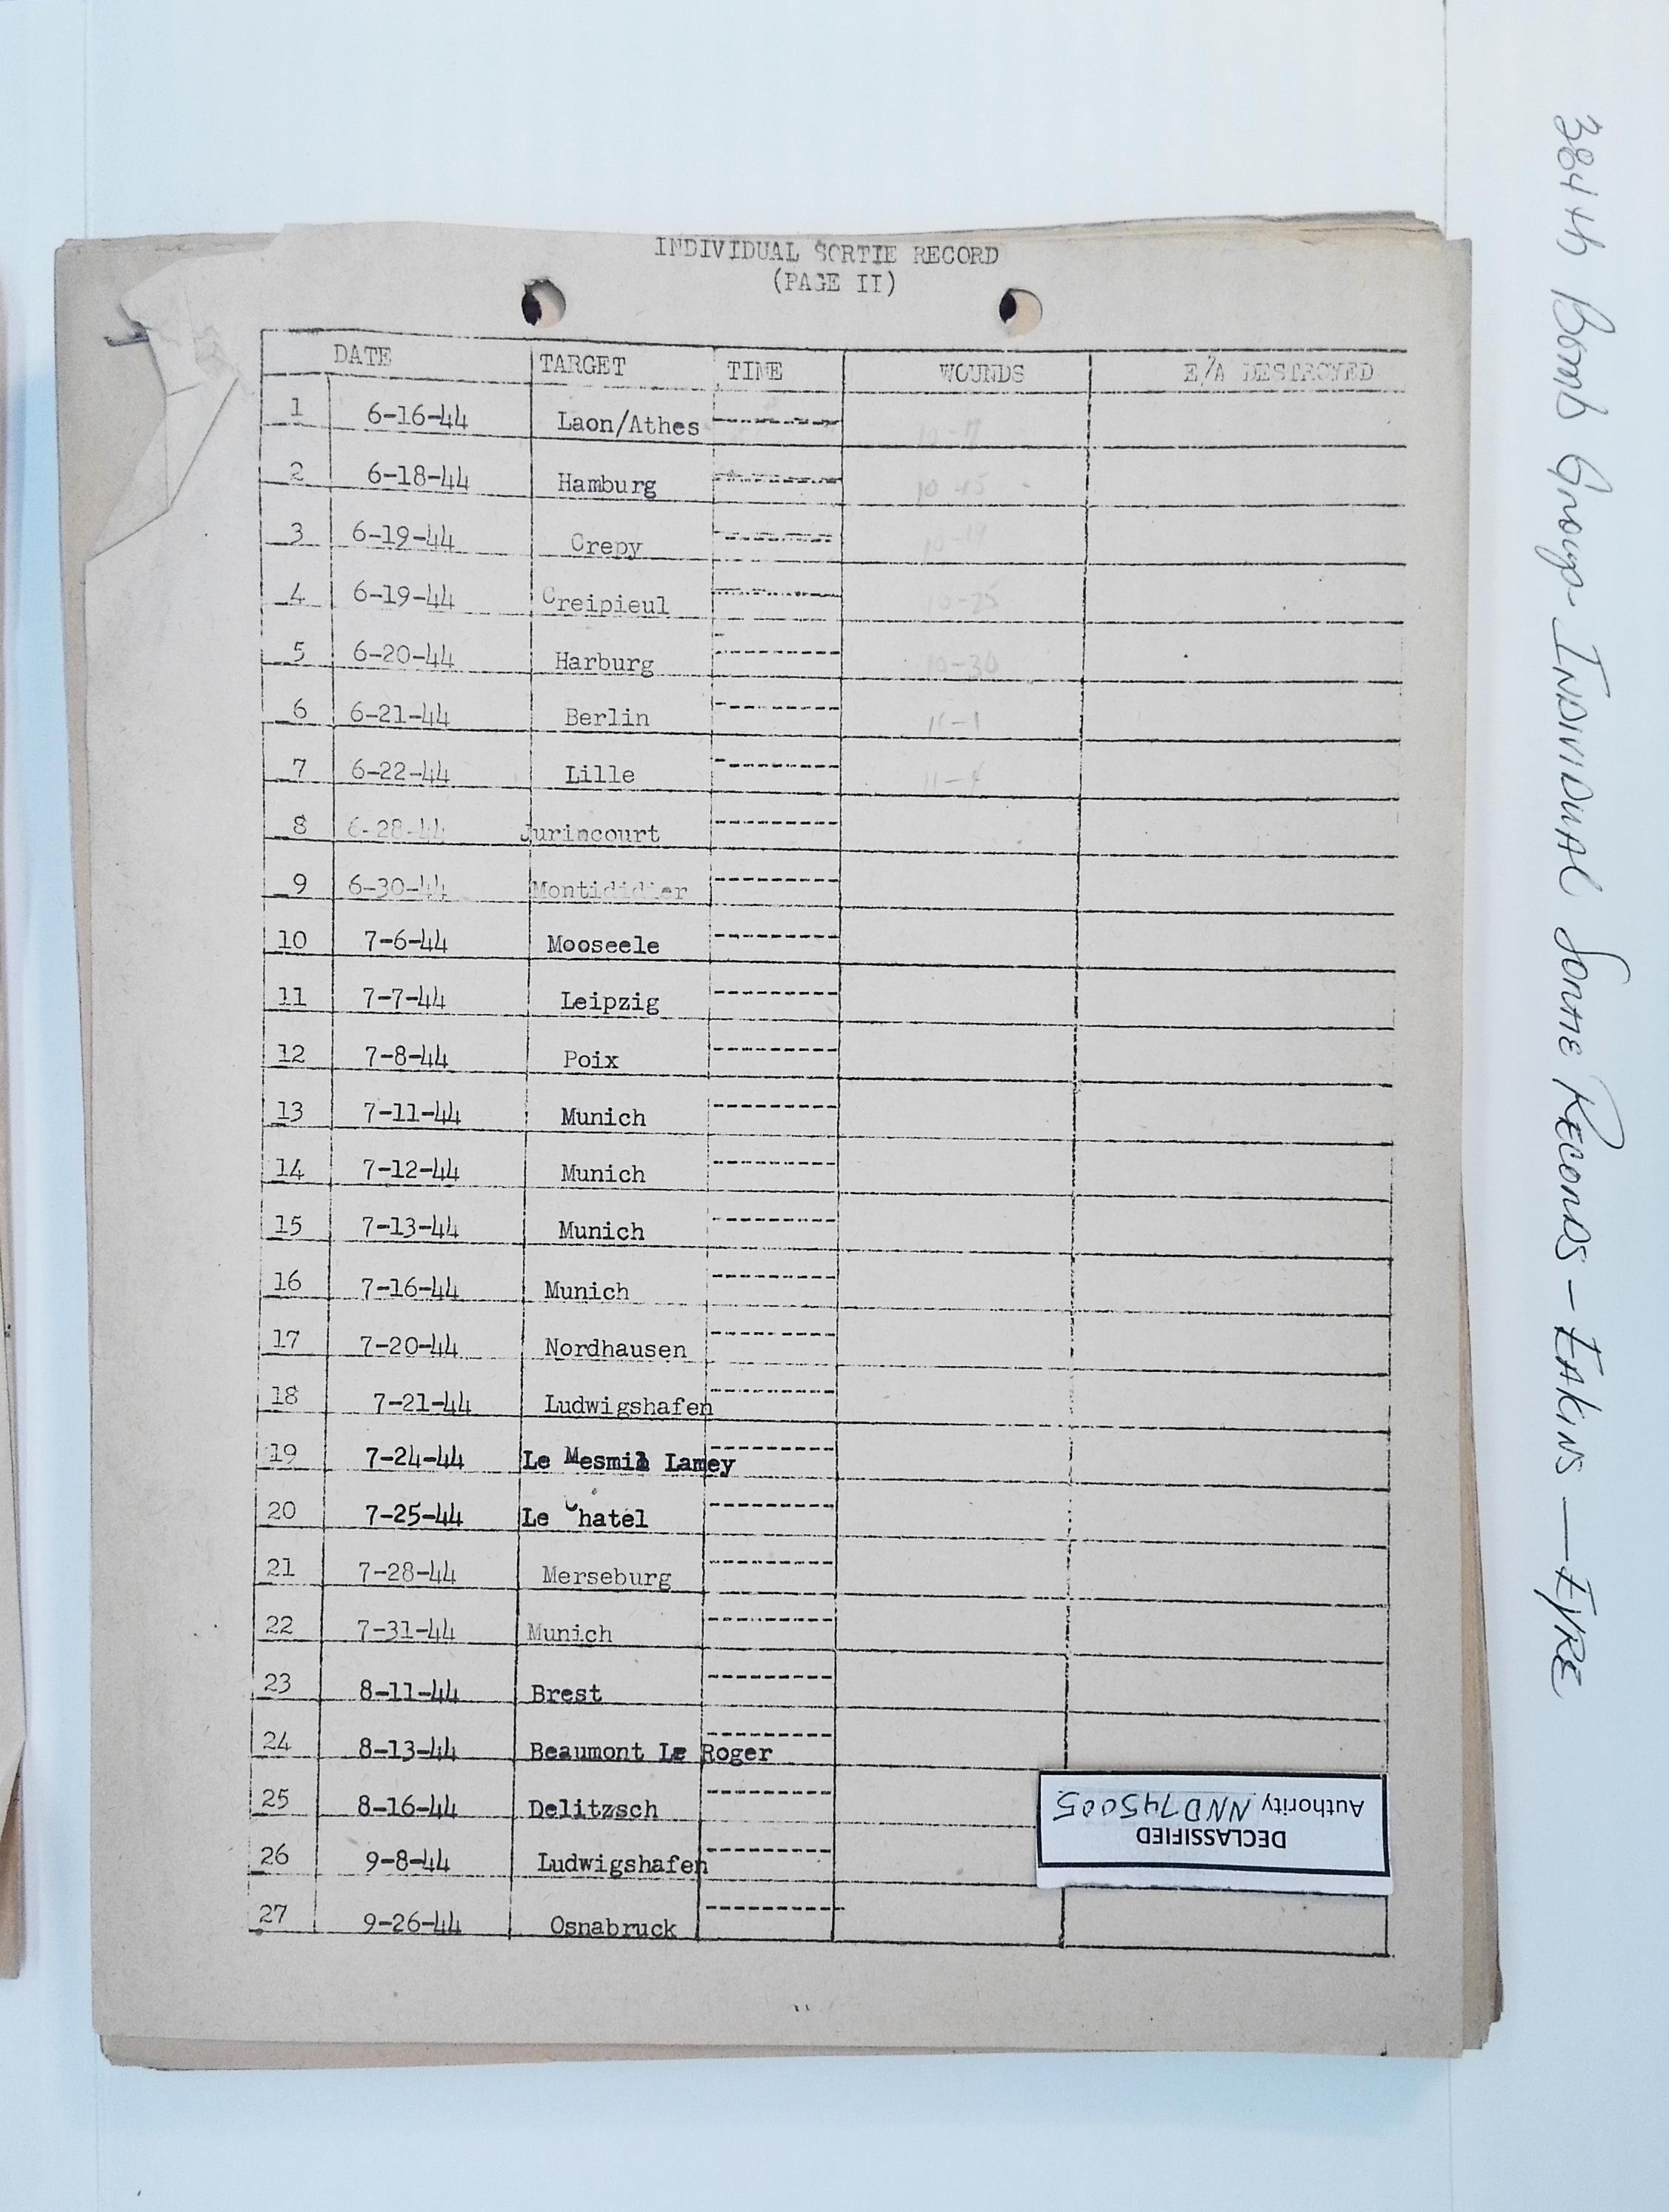 INDIVIDUAL SORTIE RECORD
(PAGE II)
DATE TARGET TIME WOUNDS E/A DESTROYED
1 6-16-44 Laon/Athes ---------
2 6-18-44 Hamburg --------- 10-15
3 6-19-44 Crepy --------- 10-19
4 6-19-44 Creipieul --------- 10-25
5 6-20-44 Harburg --------- 10-30
6 6-21-44 Berlin --------- 11-1
7 6-22-44 Lille ---------
8 6-28-44 Jurincourt ---------
9 6-30-44 Montididier ---------
10 7-6-44 Mooseele ---------
11 7-7-44 Leipzig ---------
12 7-8-44 Poix ---------
13 7-11-44 Munich ---------
14 7-12-44 Munich ---------
15 7-13-44 Munich ---------
16 7-16-44 Munich ---------
17 7-20-44 Nordhausen ---------
18 7-21-44 Ludwigshafen ---------
19 7-24-44 Le Mesmil Lamey ---------
20 7-25-44 Le Chatel ---------
21 7-28-44 Merseburg ---------
22 7-31-44 Munich ---------
23 8-11-44 Brest ---------
24 8-13-44 Beaumont Le Roger ---------
25 8-16-44 Delitzsch ---------
26 9-8-44 Ludwigshafen ---------
27 9-26-44 Osnabruck ---------
DECLASSIFIED
Authority NND745005
384th Bomb Group - Individual Sortie Records - EAKINS — EYRE